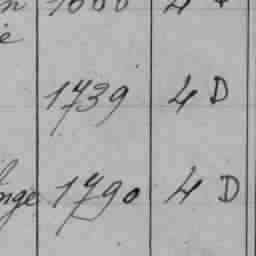 1739 4 D
nge 1790 4 D